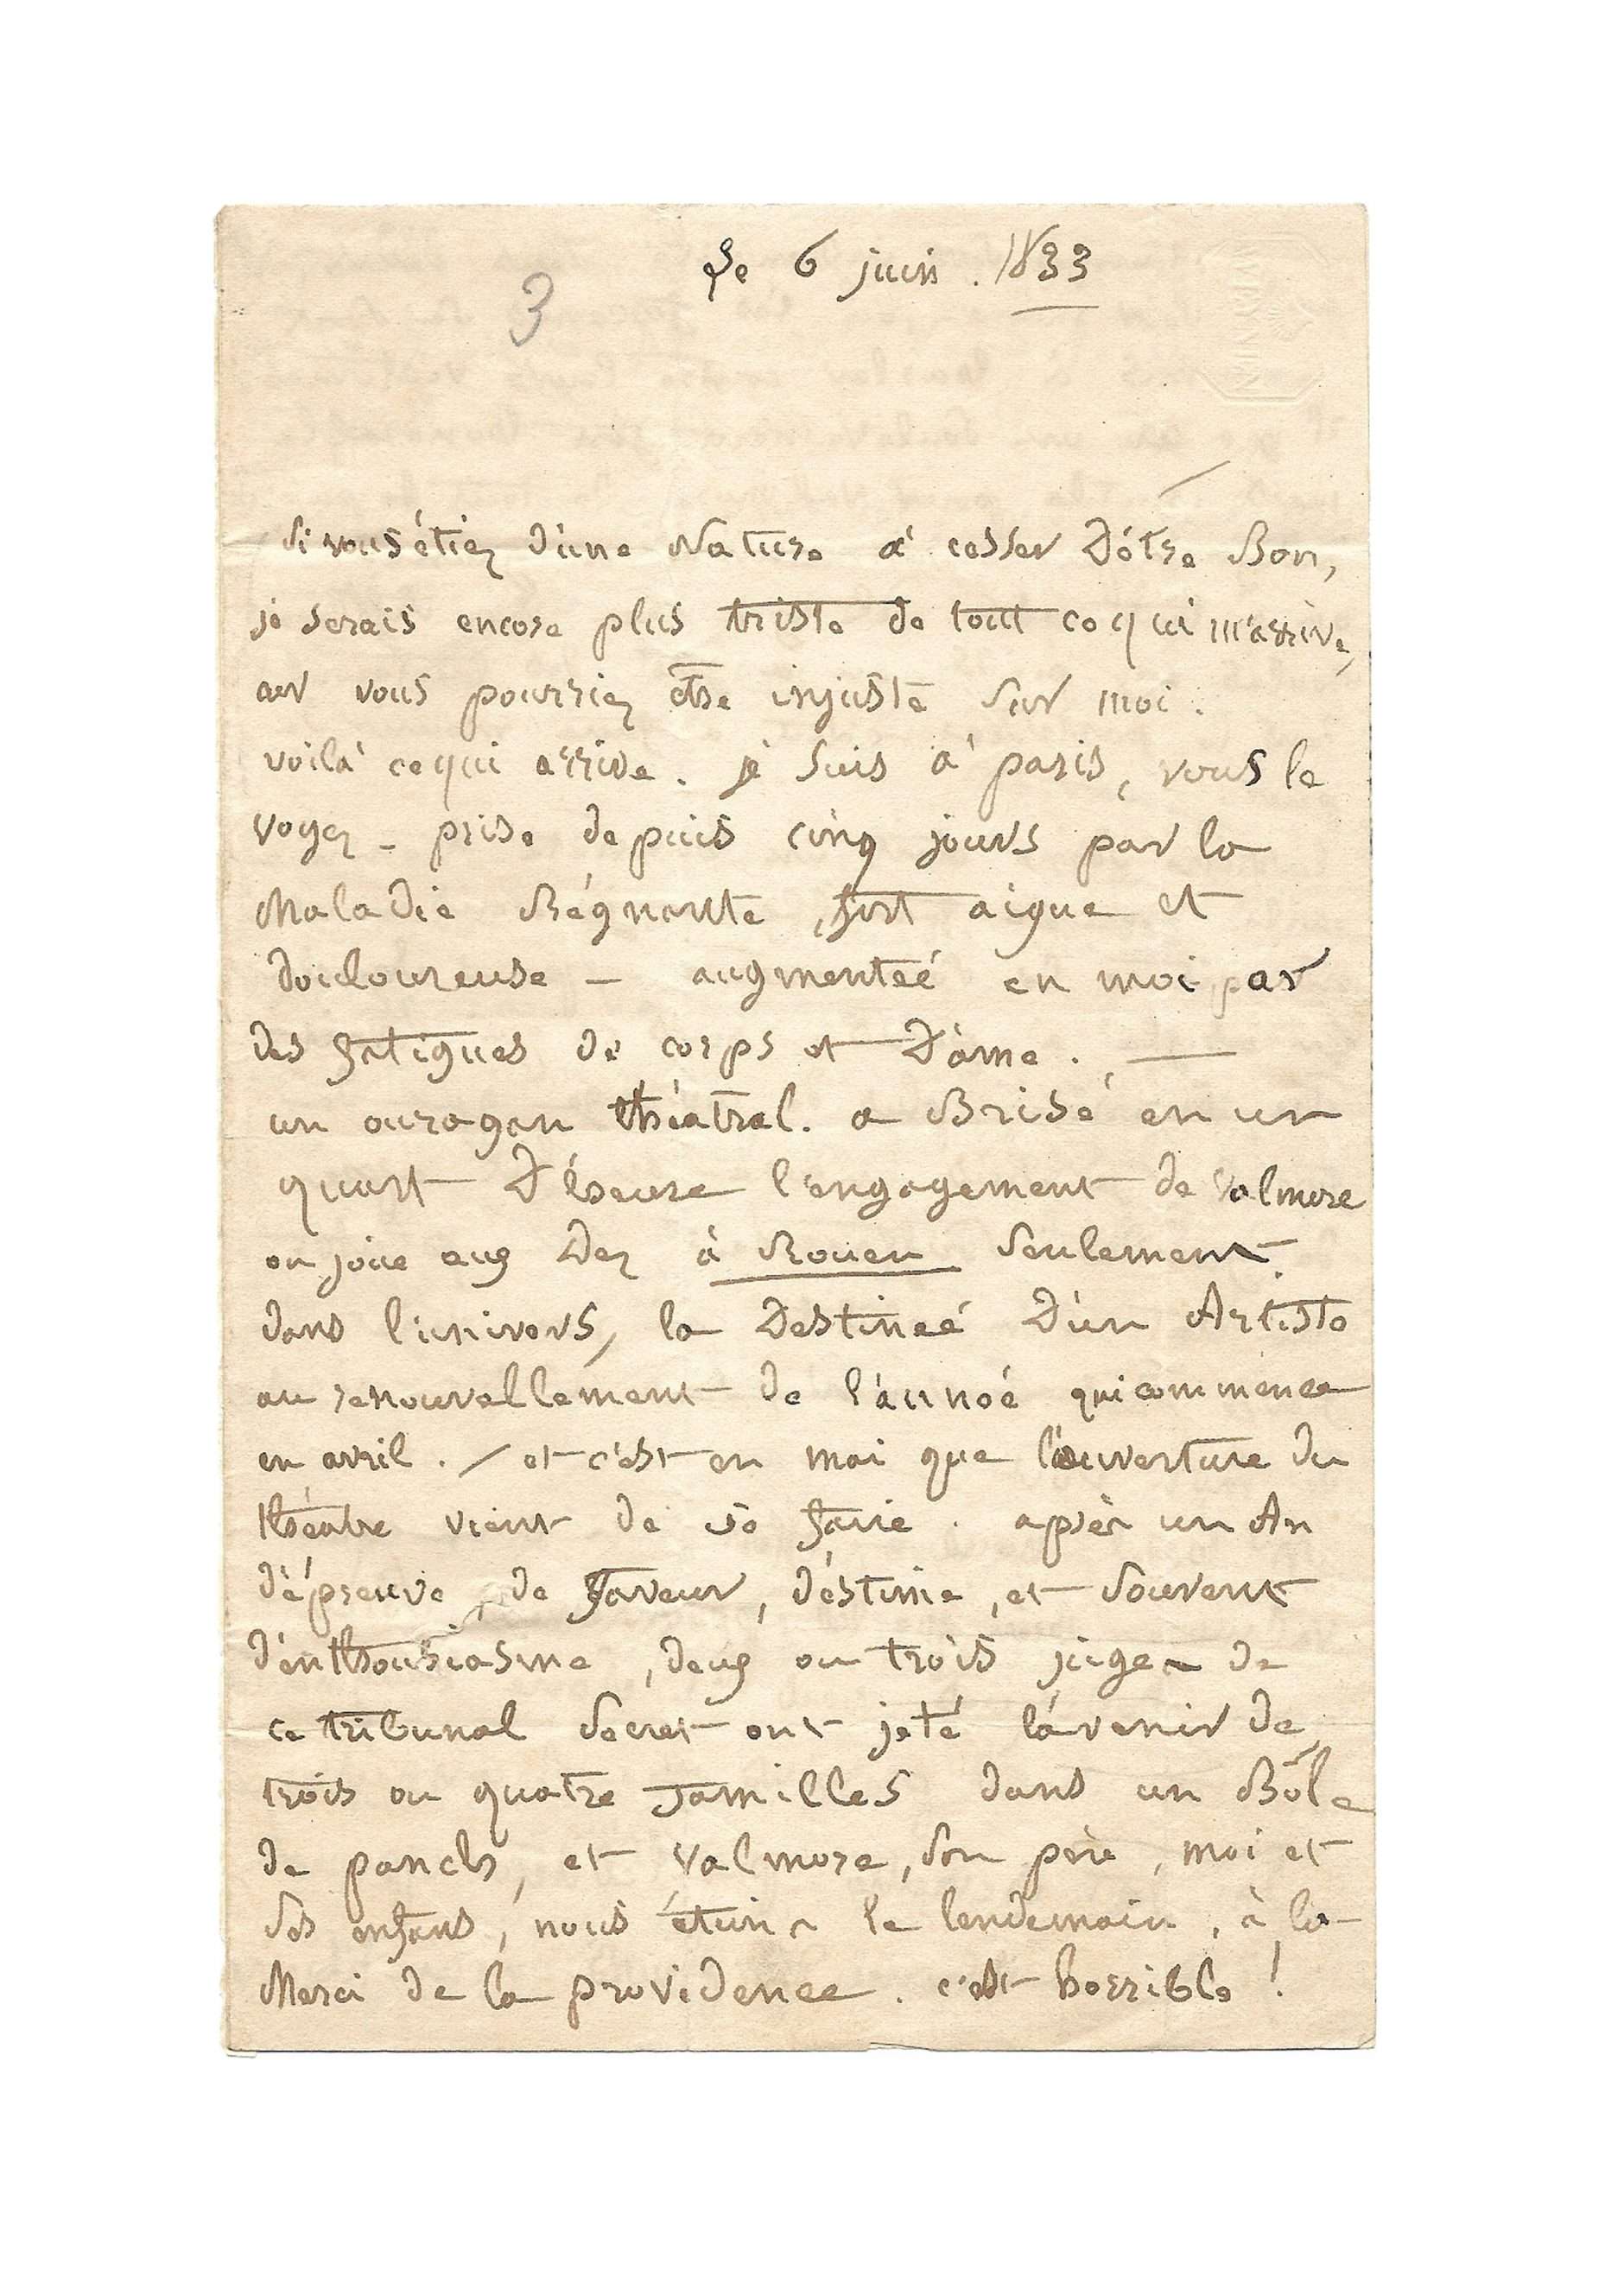 Le 6 juin . 1833
3
Si vous étiez d'une Nature à cesser d'être Bon,
je serais encore plus triste de tout ce qui m'arrive,
car vous pourriez être injuste sur moi.
voilà ce qui arrive. je suis à paris, vous le
voyez - prise depuis cinq jours par la
Maladie Régnante, fort aigue et
douloureuse - augmenteé en moi par
des fatigues de corps et d'âme. —
un ouragan théatral. a Brisé en un
quart d'heure l'engagement de Valmore
on joue aux Dez à Rouen seulement
dans l'univers, la Destineé d'un Artiste
au renouvellement de l'année qui commence
en avril. / et c'est en mai que l'ouverture du
théatre vient de se faire. après un An
d'épreuve, de faveur, d'estime, et souvent
d'enthousiasme, deux ou trois juges de
ce tribunal secret ont jeté l'avenir de
trois ou quatre familles dans un Bôle
de panch, et Valmore, son père, moi et
ses enfans, nous étions le lendemain, à la
Merci de la providence. c'est horrible !